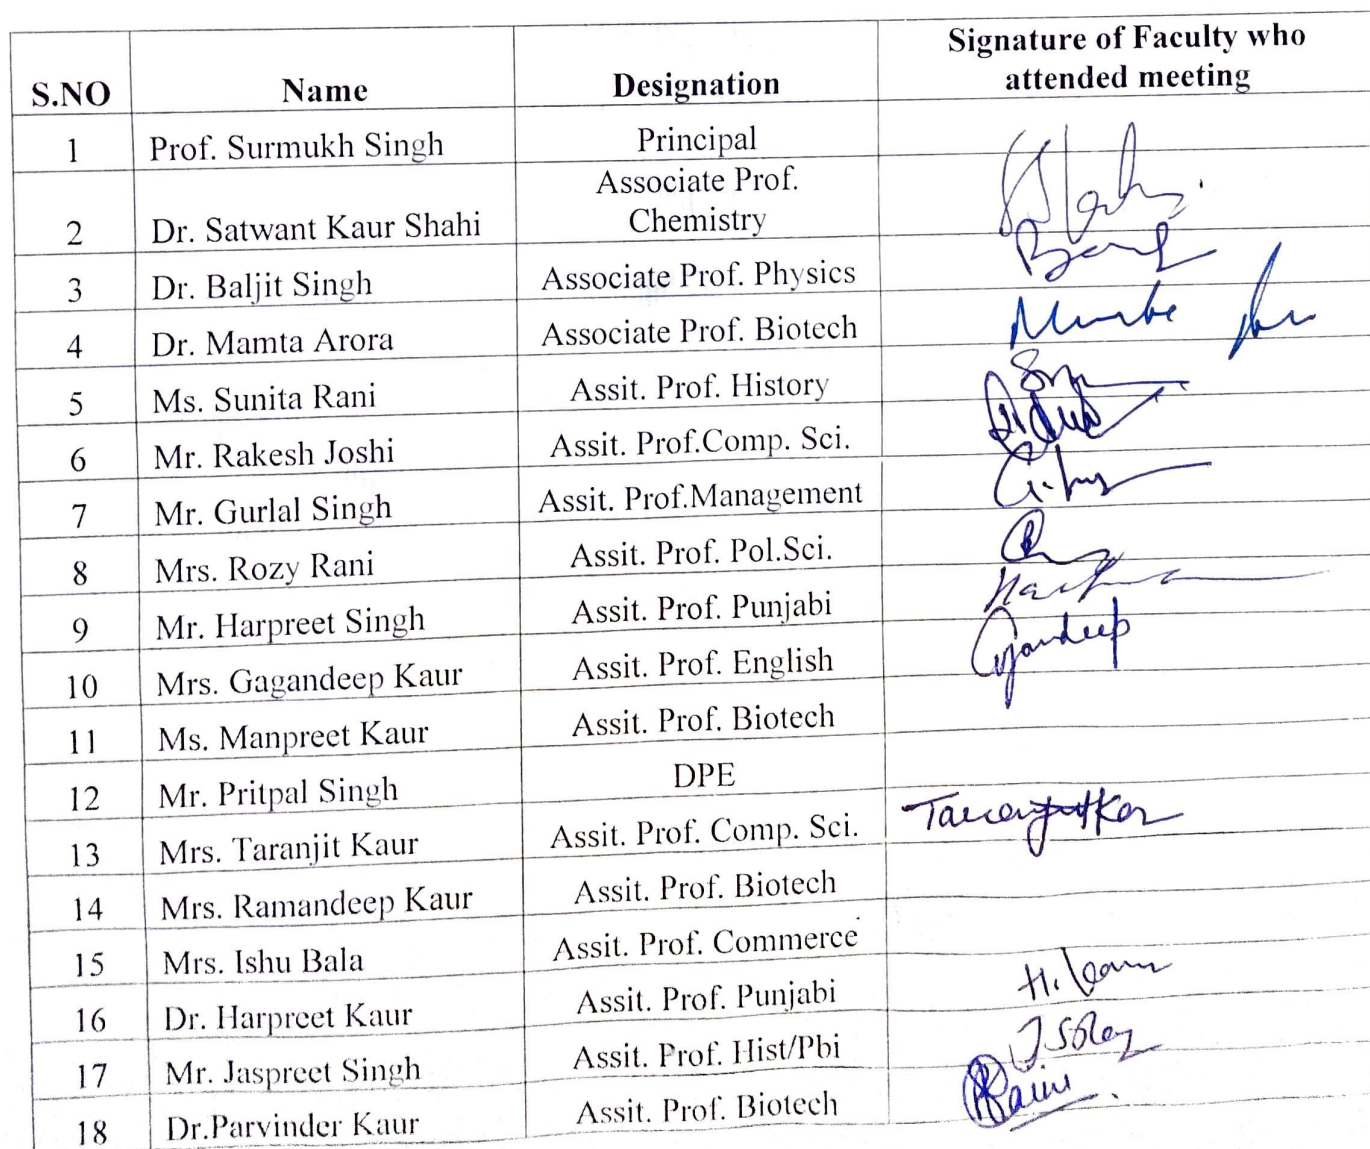 S.NO Name Designation Signature of Faculty who
attended meeting
1 Prof. Surmukh Singh Principal
2 Dr. Satwant Kaur Shahi Associate Prof.
Chemistry
3 Dr. Baljit Singh Associate Prof. Physics
4 Dr. Mamta Arora Associate Prof. Biotech
5 Ms. Sunita Rani Assit. Prof. History
6 Mr. Rakesh Joshi Assit. Prof.Comp. Sci.
7 Mr. Gurlal Singh Assit. Prof.Management
8 Mrs. Rozy Rani Assit. Prof. Pol.Sci.
9 Mr. Harpreet Singh Assit. Prof. Punjabi
10 Mrs. Gagandeep Kaur Assit. Prof. English
11 Ms. Manpreet Kaur Assit. Prof. Biotech
12 Mr. Pritpal Singh DPE
13 Mrs. Taranjit Kaur Assit. Prof. Comp. Sci.
14 Mrs. Ramandeep Kaur Assit. Prof. Biotech
15 Mrs. Ishu Bala Assit. Prof. Commerce
16 Dr. Harpreet Kaur Assit. Prof. Punjabi
17 Mr. Jaspreet Singh Assit. Prof. Hist/Pbi
18 Dr.Parvinder Kaur Assit. Prof. Biotech